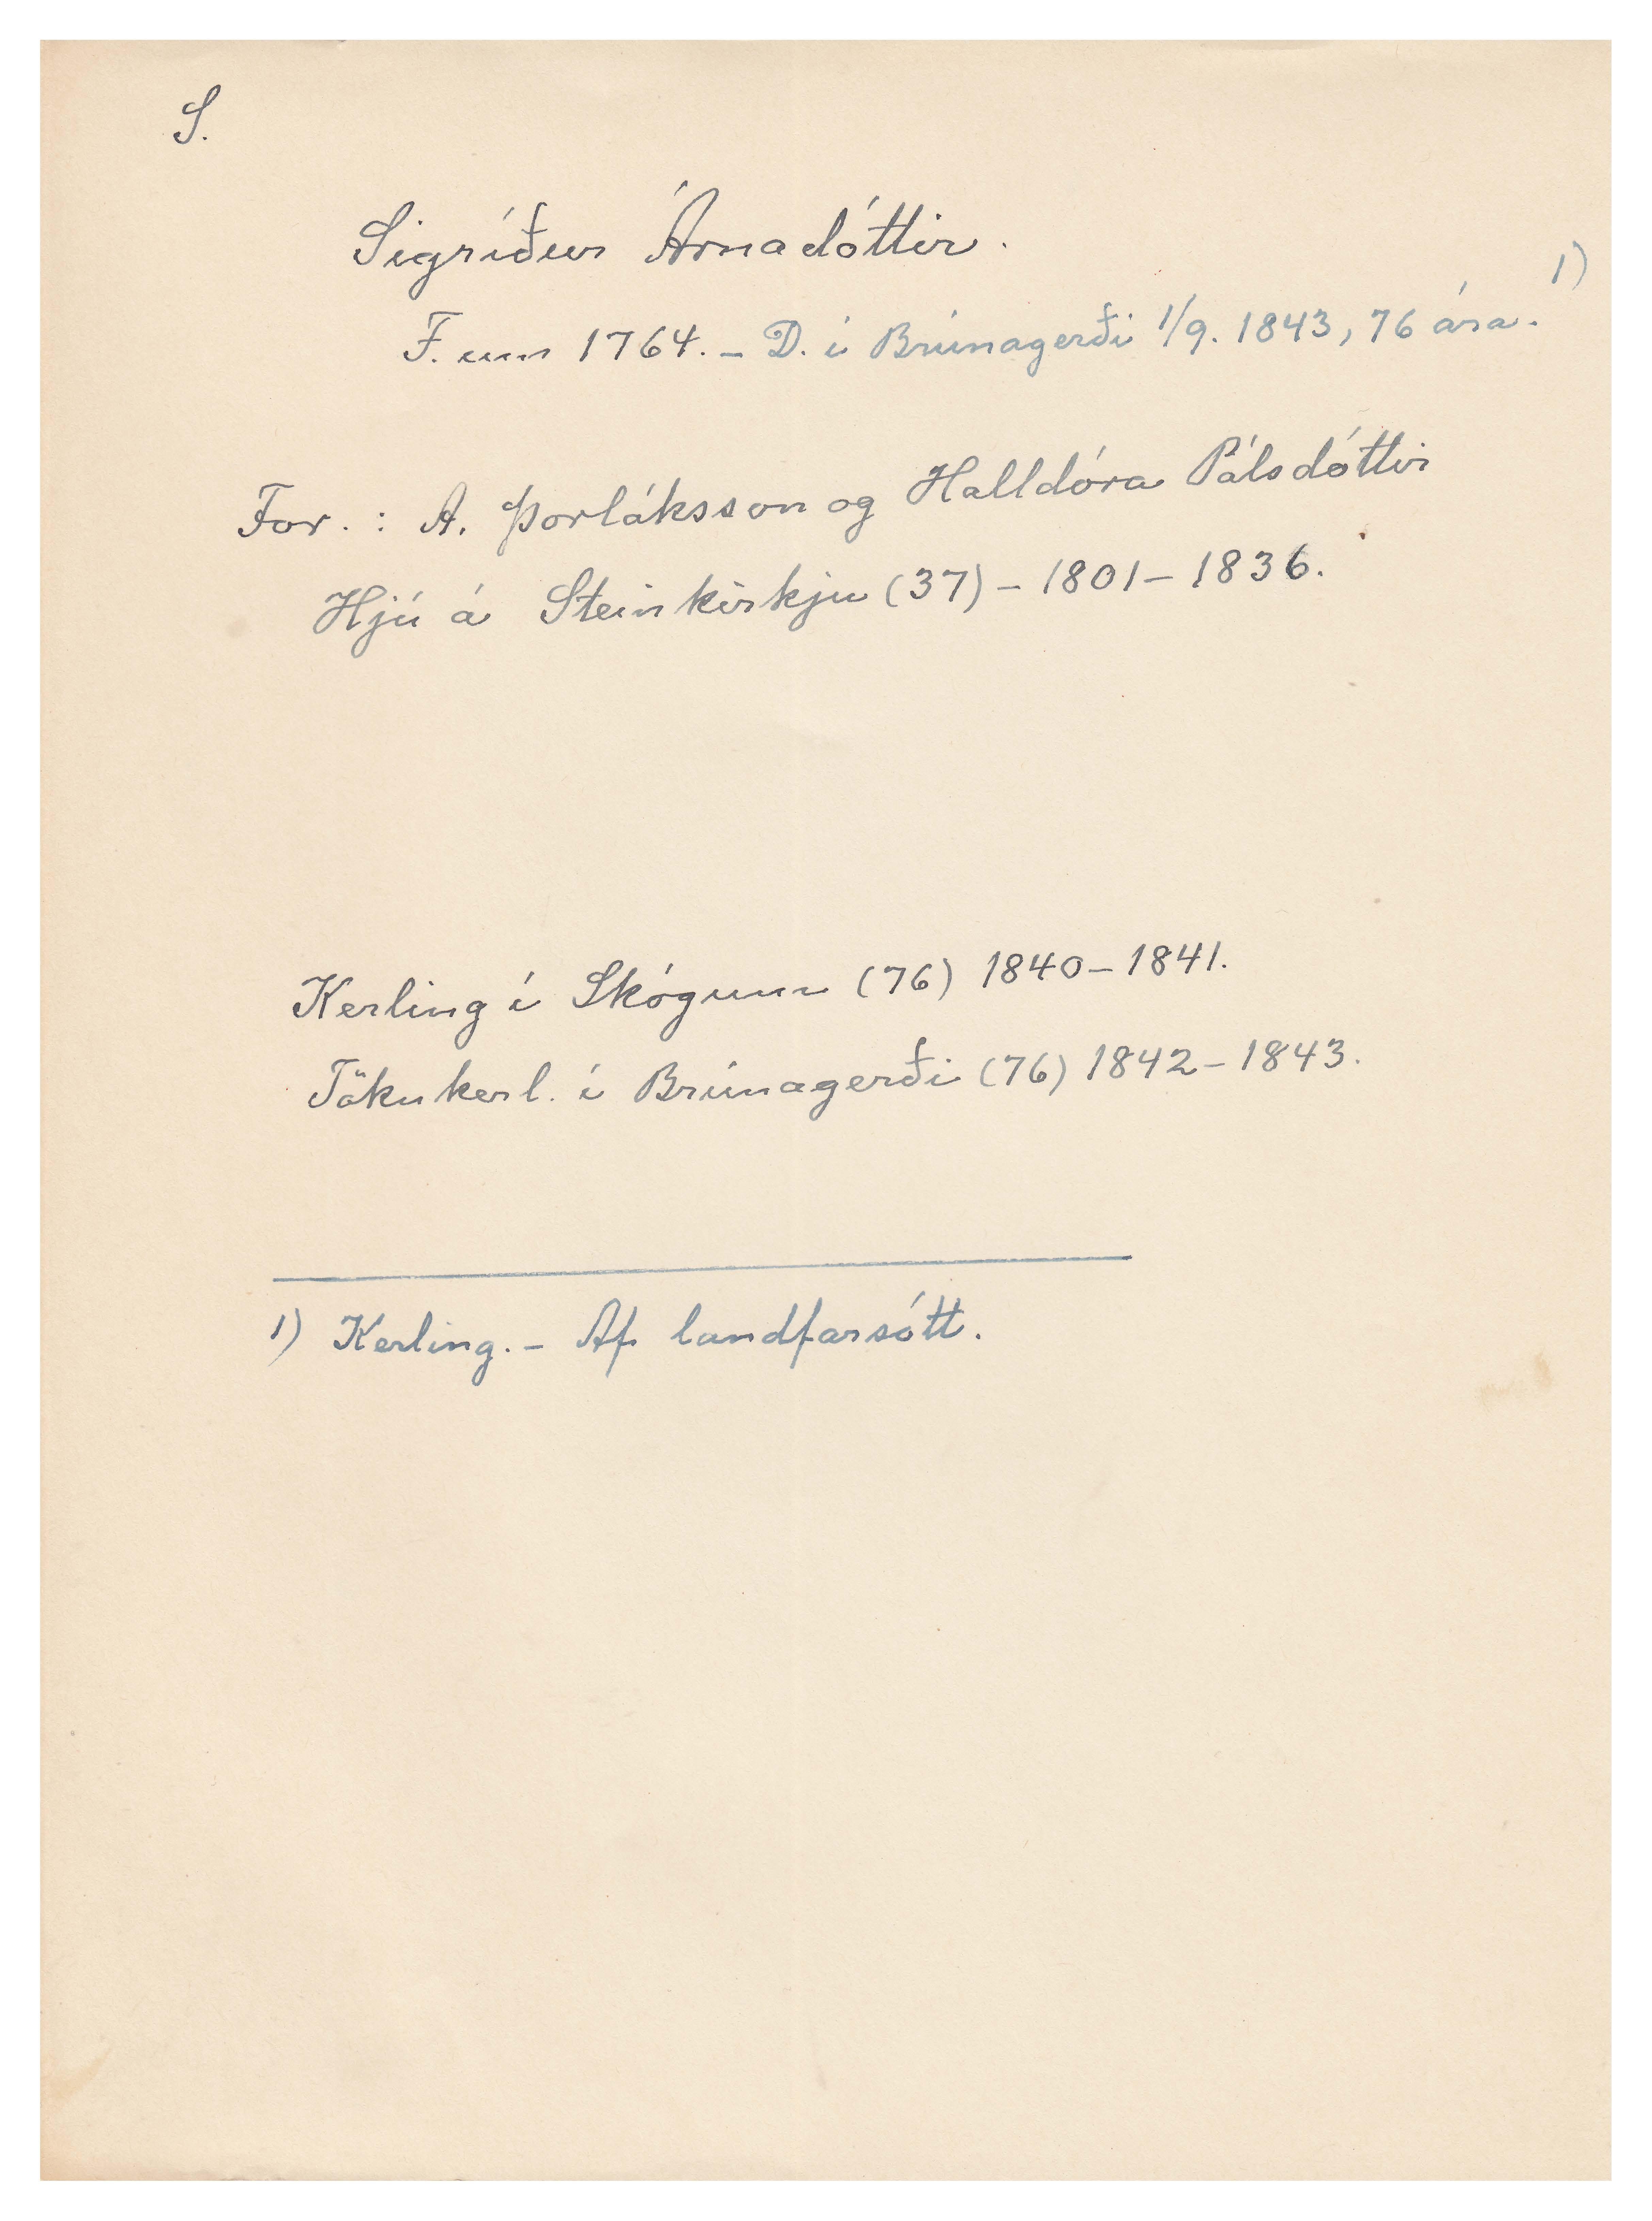 S.
Sigríður Árnadóttir.
F. um 1764. – D. í Brúnagerði 1/9. 1843, 76 ára. 1)
For. : Á. Þorláksson og Halldóra Pálsdóttir
Hjú á Steinkirkju (37) – 1801 – 1836.
Kerling í Skógum (76) 1840 – 1841.
Tökukerl. í Brúnagerði (76) 1842 – 1843.
1) Kerling. – Af landfarsótt.